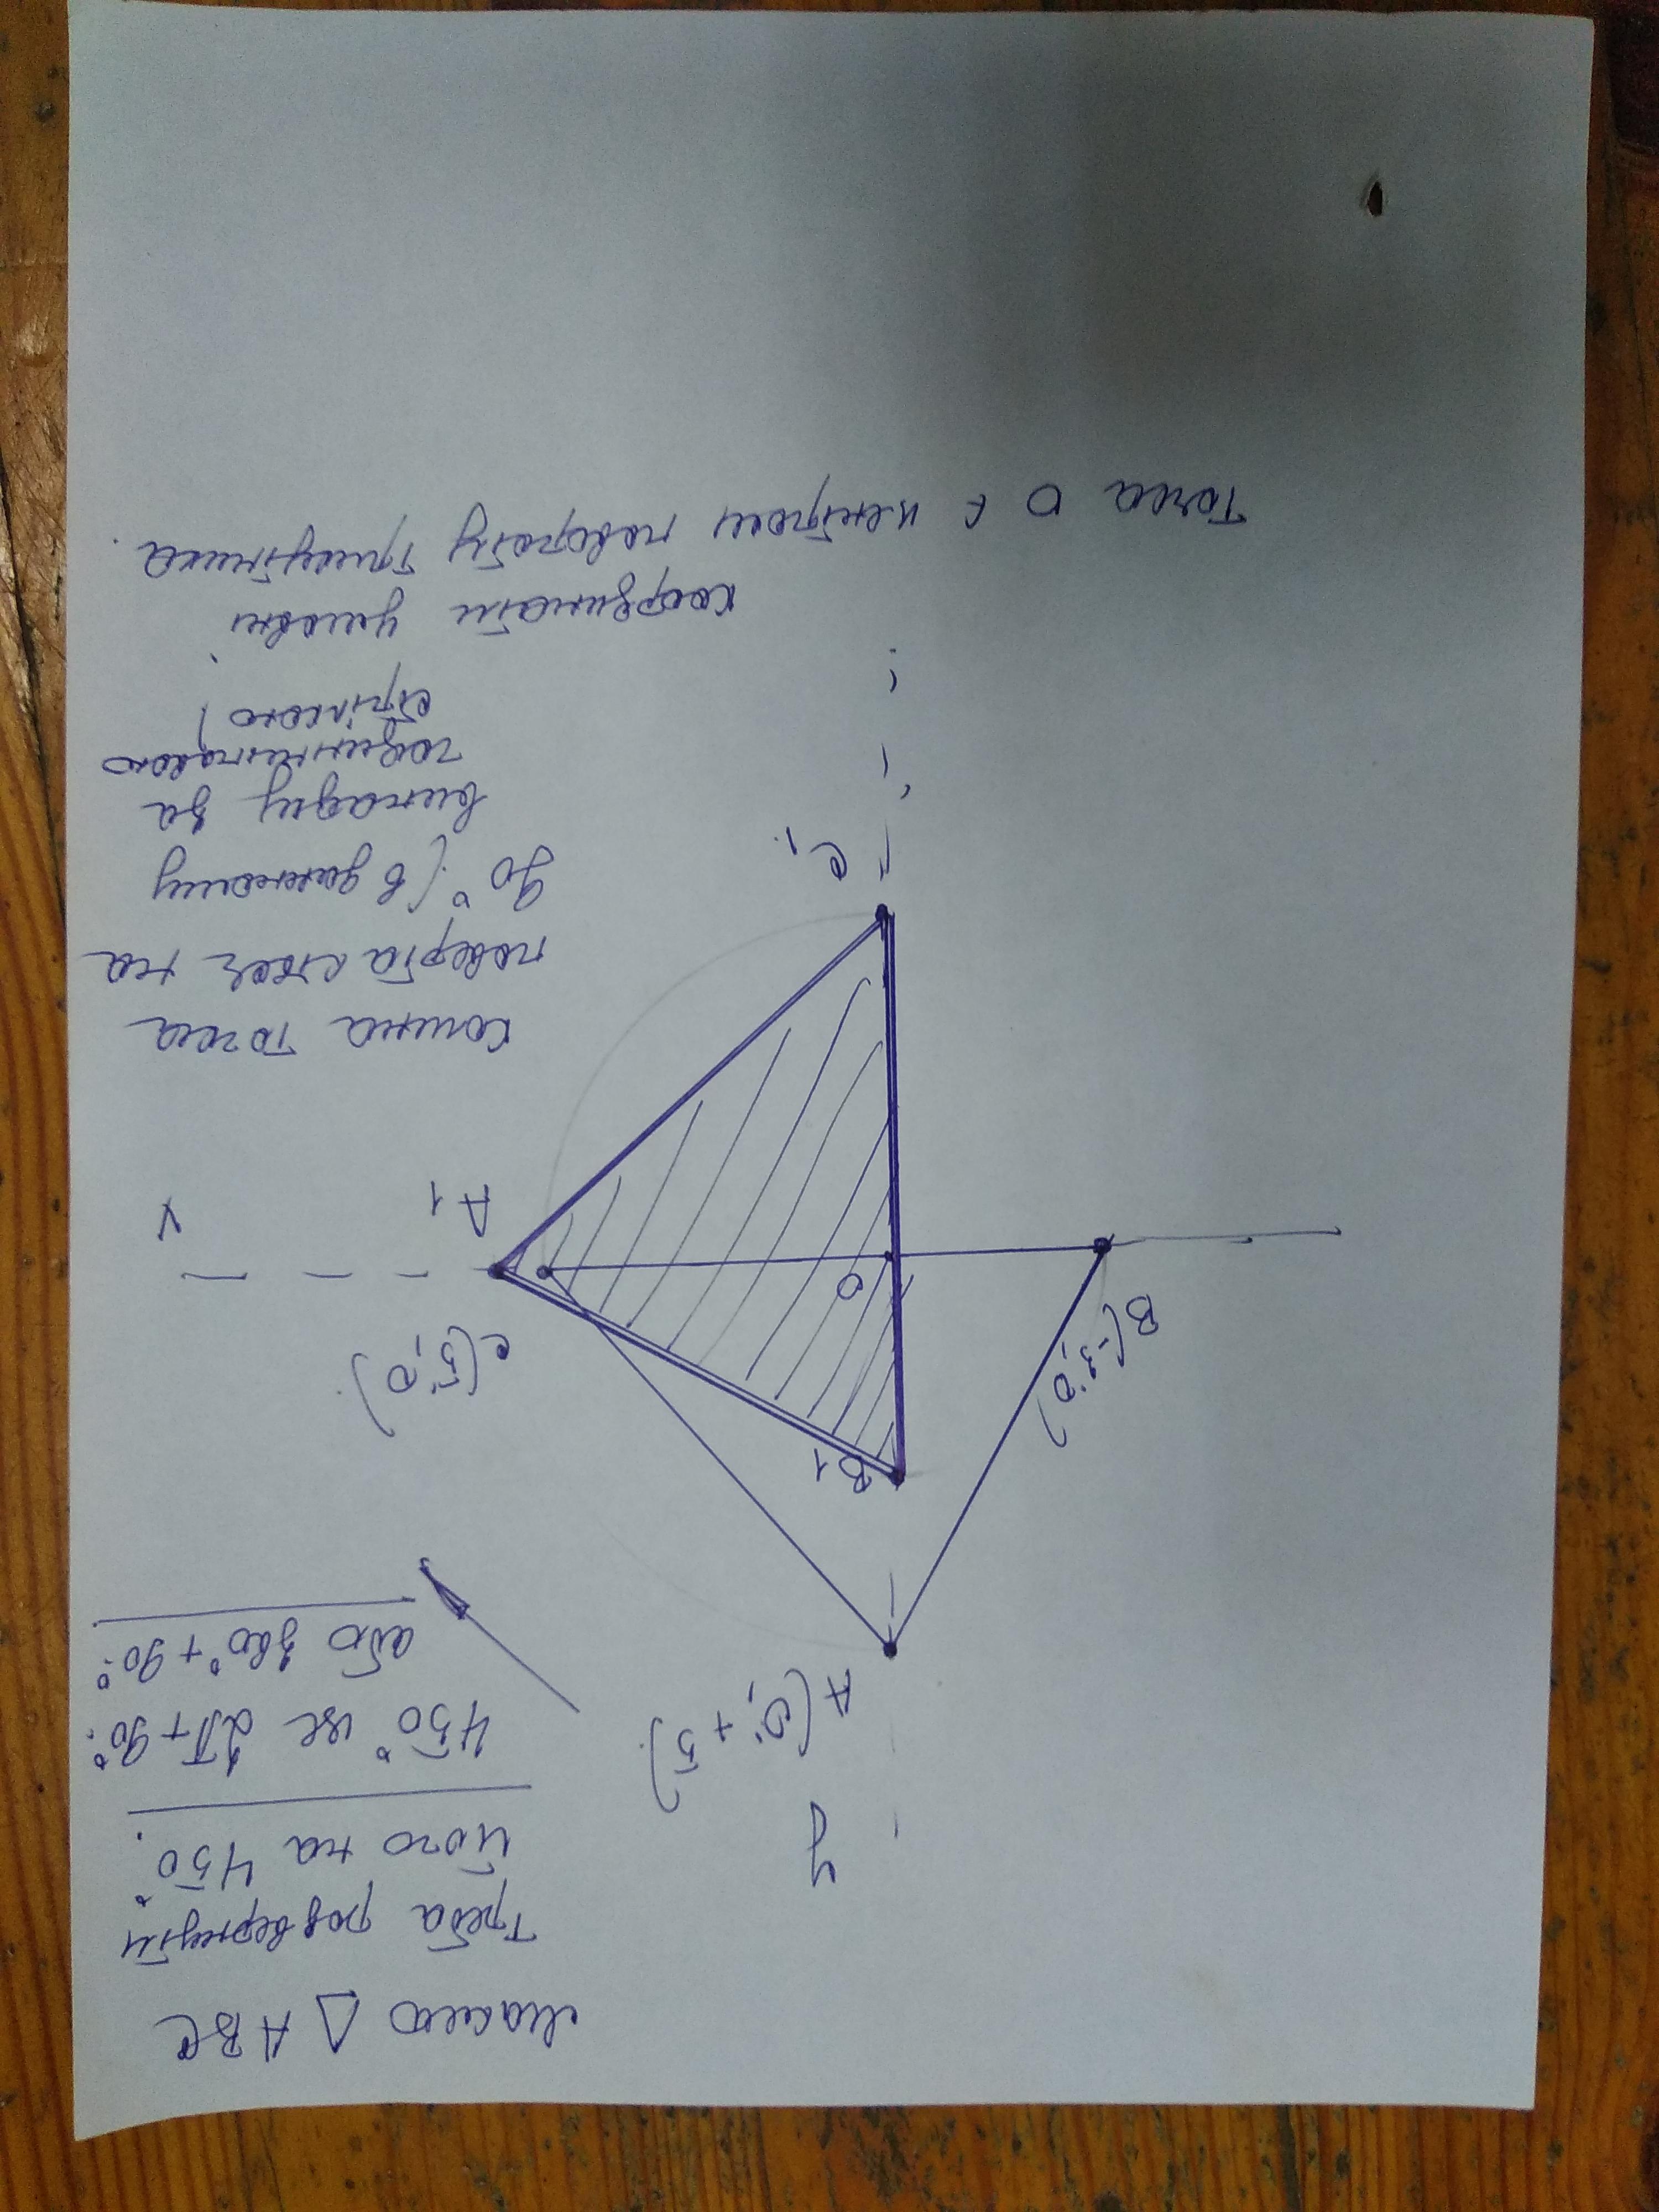 маємо △ ABC
треба розвернути
його на 450°.
450° це 2π + 90°.
або 360° + 90°.
y
A (0; +5).
B1
B(-3; 0)
C(5; 0).
O
x
A1
C1
кожна точка
поверталась на
90° (в данному
випадку за
годинниковою
стрілкою)
координати умовні.
Точка O є центром повороту трикутника.